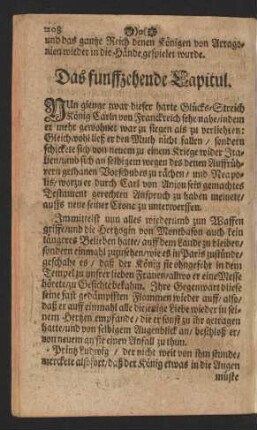 208
und das gantze Reich denen Königen von Arrago-
nien wieder in die Hände gespielet wurde.
Das funffzehende Capitul.
NUn gienge zwar dieser harte Glücks-Streich
König Carln von Franckreich sehr nahe/indem
er mehr gewohnet war zu siegen als zu verliehren:
Gleichwohl ließ er den Muth nicht fallen / sondern
schickete sich von neuem zu einem Kriege wider Ita-
lien/umb sich an selbigem wegen des denen Auffrüh-
rern gethanen Vorschubes zu rächen/ und Neapo-
lis/ worzu er durch Carl von Anjou sein gemachtes
Testament gerechten Anspruch zu haben meinete/
auffs neue seiner Crone zu unterwerffen.
Immittelst nun alles wiederumb zun Waffen
griffe/ und die Hertzogin von Montbason auch kein
längeres Belieben hatte/ auff dem Lande zu bleiben/
sondern einmahl zuzusehen/ wie es in Paris zustünde/
geschahe es / daß der König sie ohngefehr in dem
Tempel zu unser lieben Frauen/ allwo er eine Messe
hörete/ zu Gesichte bekahm. Ihre Gegenwart bliese
seine fast gedämpfften Flammen wieder auff/ also/
daß er auff einmahl alle diejenige Liebe wieder in sei-
nem Hertzen empfande/ die er sonst zu ihr getragen
hatte/ und von selbigem Augenblick an/ beschloß er/
von neuem an sie einen Anfall zu thun.
Printz Ludwig / der nicht weit von ihm stunde/
merckete alsofort/ daß der König etwas in die Augen
müste